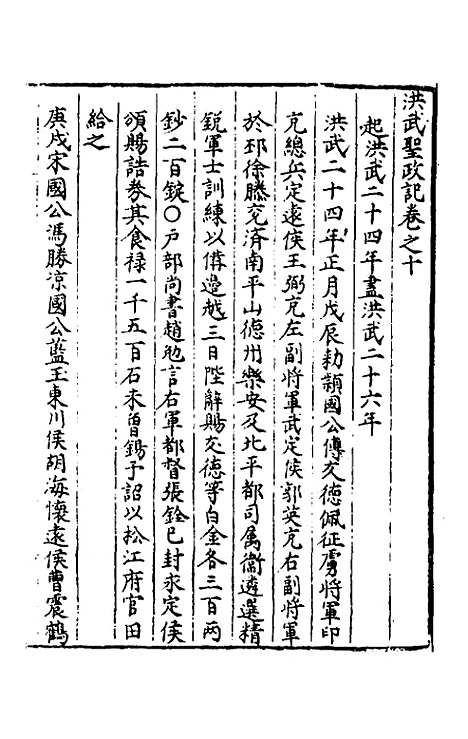 洪武聖政記卷之十
起洪武二十四年盡洪武二十六年
洪武二十四年正月戊辰勑頴國公傅友德佩征虜將軍印
充總兵定遠侯王弼充左副將軍武定侯郭英充右副將軍
於邳徐滕兗済南平山德州樂安及北平都司属衞遴選精
銳軍士訓練以備邉越三日陛辭賜友德等白金各三百兩
鈔二百錠○戶部尚書趙勉言右軍都督張銓已封永定侯
頒賜誥券其食禄一千五百石未曽錫予詔以松江府官田
給之
庚戌宋國公馮勝凉國公藍玉東川侯胡海懷遠侯曹震鶴